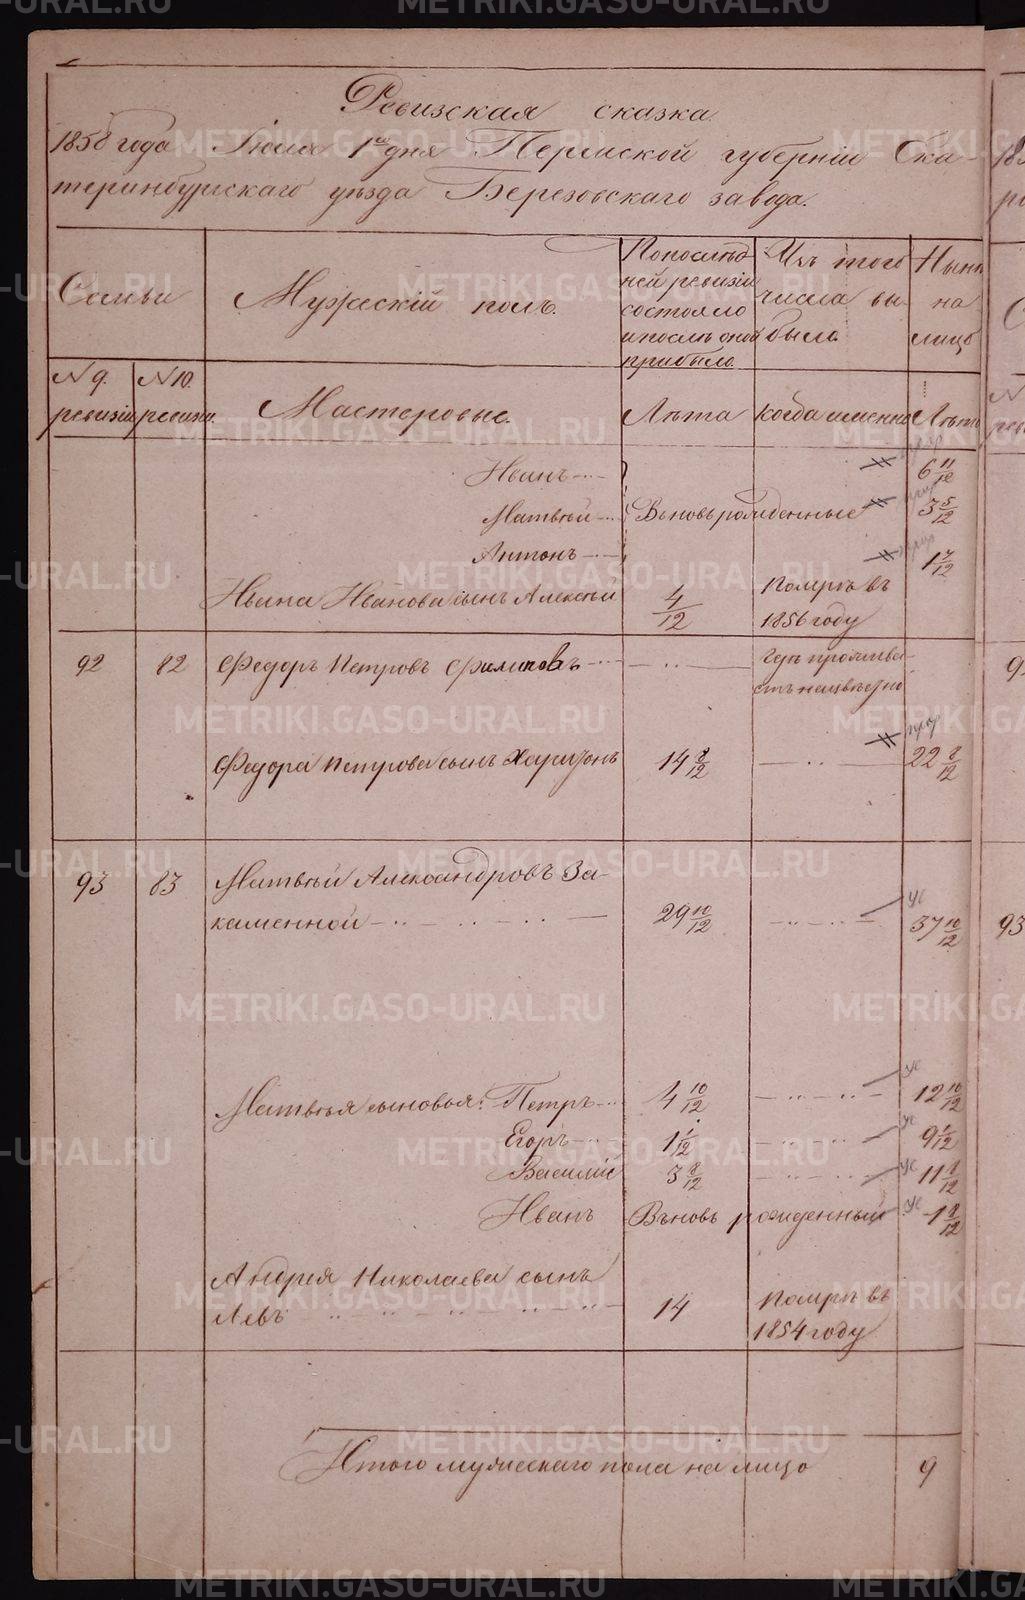 Ревизская сказка
1858 года Июня 1го дня Пермской губернiи Ека-
теринбургскаго уѣзда Березовскаго завода.
Семьи
Мужескiй полъ.
По послѣд-
ней ревизiи
состояло
и послѣ оной
прибыло.
Изъ того
числа вы-
было.
Нынѣ
на
лицо
N 9.
ревизiи
N 10.
ревизiи.
Мастеровые.
Лѣта
когда именно
Лѣта
Иванъ 6 11/12
Матвѣй Вновьрожденные 3 5/12
Антонъ 1 7/12
Ивана Иванова сынъ Алексѣй 4/12 Помръ въ
1856 году
92 82 Федоръ Петровъ Филиповъ Гдѣ прожива-
етъ неизвѣстно
Федора Петрова сынъ Харитонъ 14 8/12 22 8/12
93 83 Матвѣй Александровъ За-
каменной 29 10/12 37 10/12
Матвѣя сыновья: Петръ 4 10/12 12 10/12
Егоръ 1 1/12 9 1/12
Василiй 3 8/12 11 8/12
Иванъ Вновь рожденный 1 8/12
Андрея Николаева сынъ
Левъ 14 Помръ въ
1854 году
Итого мужескаго пола на лицо 9
METRIKI.GASO-URAL.RU